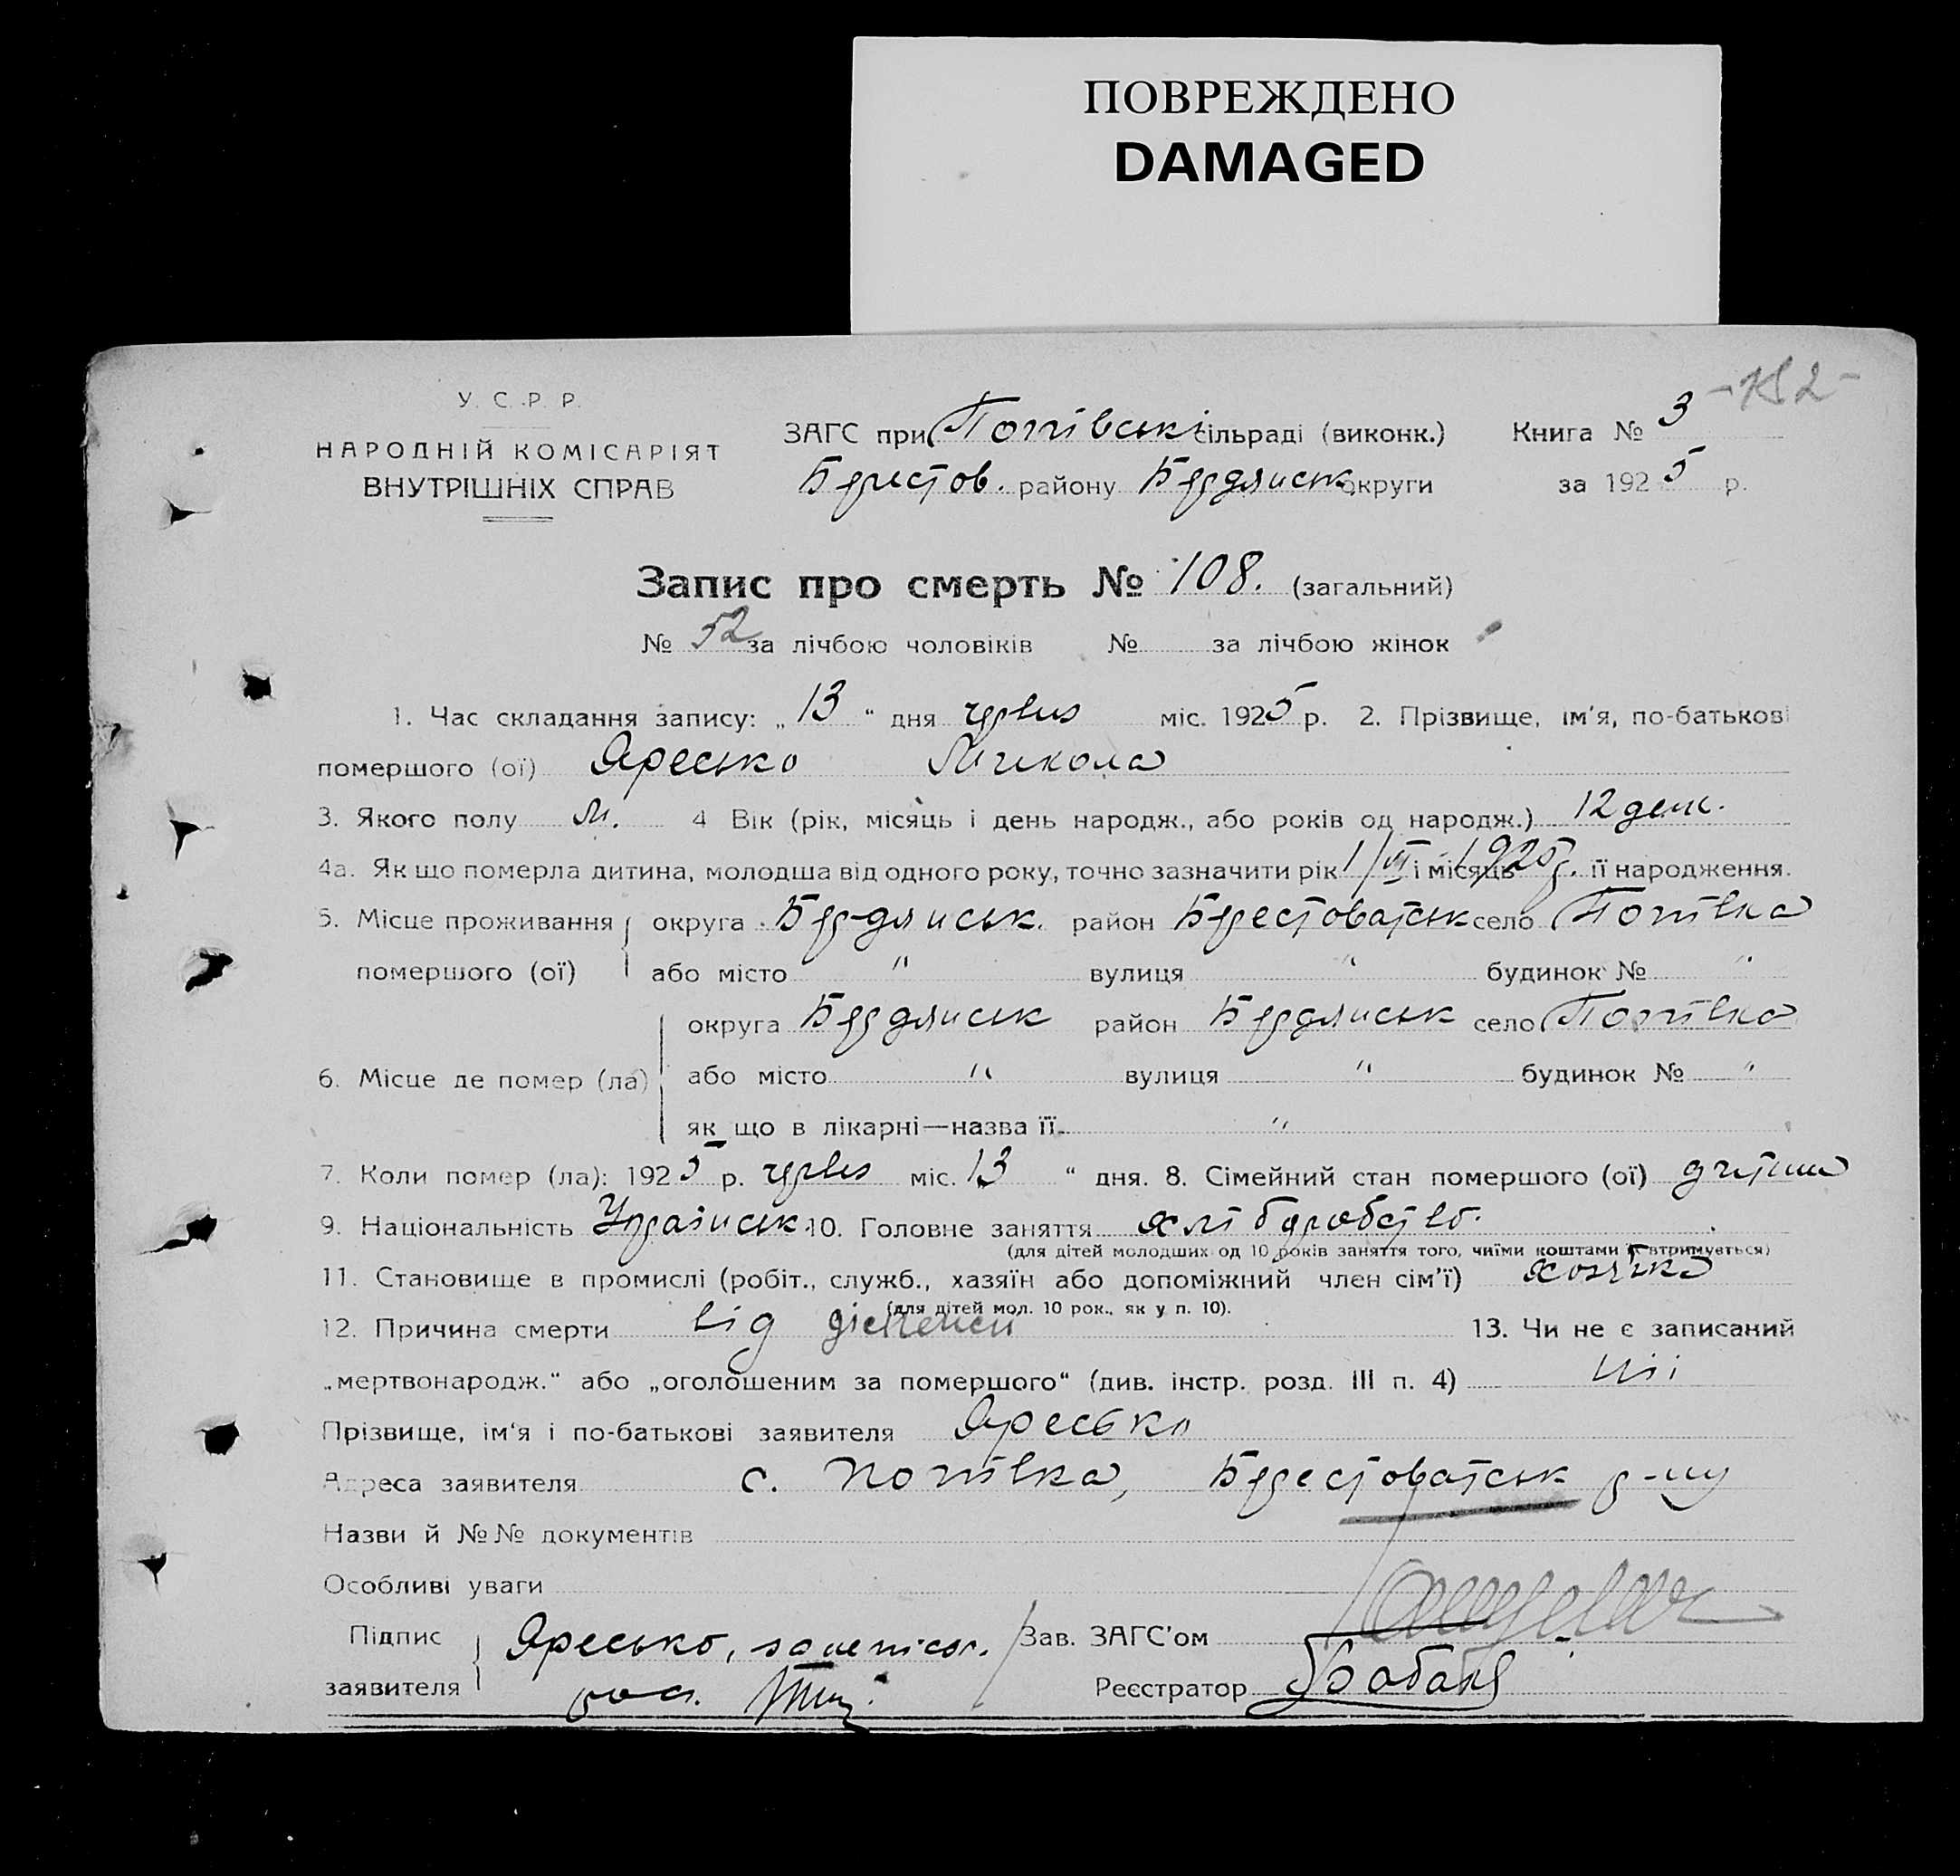 ПОВРЕЖДЕНО
DAMAGED
-152-
У. С. Р. Р.
НАРОДНІЙ КОМІСАРІЯТ
ВНУТРІШНІХ СПРАВ
ЗАГС при Попівські сільраді (виконк.) Книга № 3
Берестов. району Бердянськ округи за 1925 р.
Запис про смерть № 108. (загальний)
№ 52 за лічбою чоловіків № за лічбою жінок
1. Час складання запису: „13“ дня червня міс. 1925 р. 2. Прізвище, ім'я, по-батькові
помершого (ої) Яресько Микола
3. Якого полу м. 4 Вік (рік, місяць і день народж., або років од народж.) 12 ден.
4а. Як що померла дитина, молодша від одного року, точно зазначити рік 1/VI і місяць 1925 р. її народження.
5. Місце проживання округа Бердянськ. район Берестоватськ село Попівка
помершого (ої) або місто " вулиця " будинок № "
округа Бердянськ район Бердянськ село Попівка
6. Місце де помер (ла) або місто " вулиця " будинок № "
як що в лікарні—назва її "
7. Коли помер (ла): 1925 р. червня міс. 13 “ дня. 8. Сімейний стан помершого (ої) дитина
9. Національність Українськ. 10. Головне заняття хліборобство.
(для дітей молодших од 10 років заняття того, чиїми коштами втримується)
11. Становище в промислі (робіт., служб., хазяїн або допоміжний член сім'ї)
(для дітей мол. 10 рок., як у п. 10).
12. Причина смерти від 13. Чи не є записаний
„мертвонародж.“ або „оголошеним за помершого“ (див. інстр. розд. III п. 4) ні
Прізвище, ім'я і по-батькові заявителя Яресько
Адреса заявителя с. Попівка, Берестоватськ р-ну
Назви й №№ документів
Особливі уваги
Підпис Яресько, Зав. ЗАГС'ом
заявителя Реєстратор